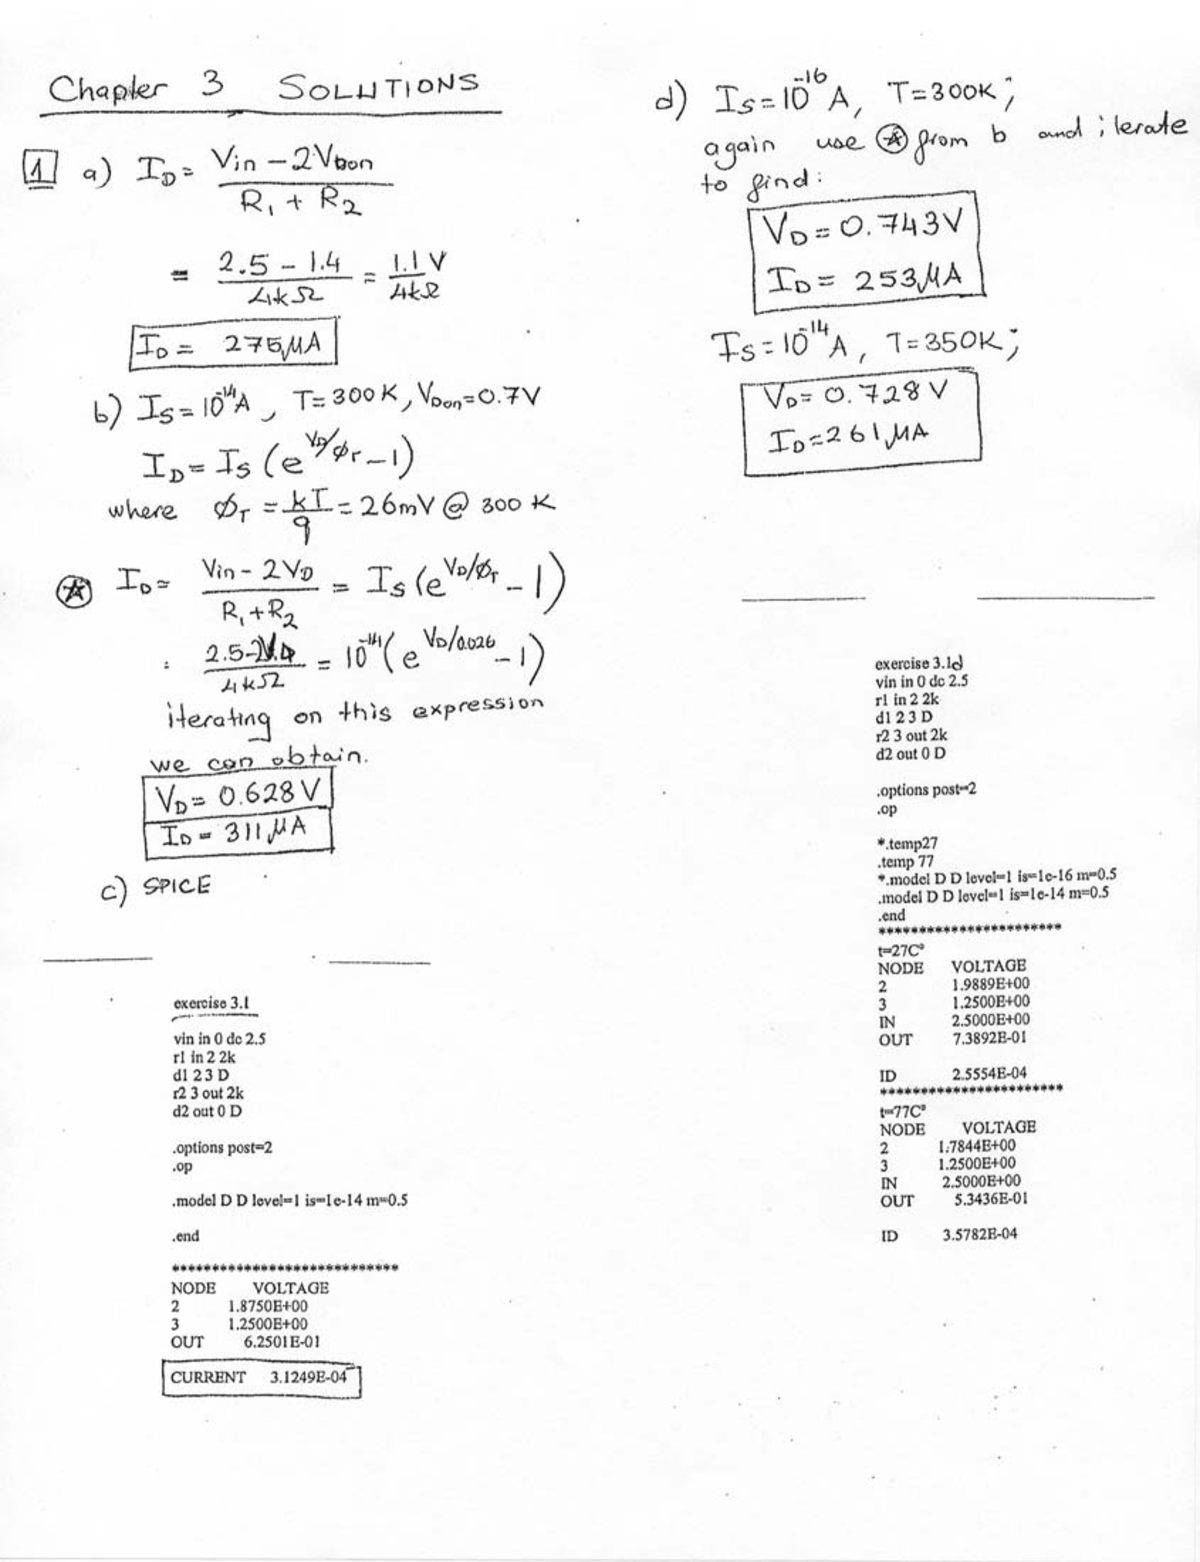 Chapter 3 SOLUTIONS
1 a) I_D = (Vin - 2V_Don) / (R_1 + R_2)
= (2.5 - 1.4) / 4kΩ = 1.1 V / 4kΩ
I_D = 275 μA
b) I_S = 10^-14 A, T = 300 K, V_Don = 0.7V
I_D = I_S (e^(V_D/ø_T) - 1)
where ø_T = kT/q = 26mV @ 300 K
☆ I_D = (Vin - 2V_D) / (R_1 + R_2) = I_S (e^(V_D/ø_T) - 1)
= 10^-14 (e^(V_D/0.026) - 1)
4kΩ
iterating on this expression
we can obtain.
V_D = 0.628 V
I_D = 311 μA
c) SPICE
exercise 3.1
vin in 0 dc 2.5
r1 in 2 2k
d1 2 3 D
r2 3 out 2k
d2 out 0 D
.options post=2
.op
.model D D level=1 is=1e-14 m=0.5
.end
****************************
NODE VOLTAGE
2 1.8750E+00
3 1.2500E+00
OUT 6.2501E-01
CURRENT 3.1249E-04
d) I_S = 10^-16 A, T = 300K;
again use ☆ from b and iterate
to find:
V_D = 0.743V
I_D = 253 μA
I_S = 10^-14 A, T = 350K;
V_D = 0.728 V
I_D = 261 μA
exercise 3.1d
vin in 0 dc 2.5
r1 in 2 2k
d1 2 3 D
r2 3 out 2k
d2 out 0 D
.options post=2
.op
*.temp27
.temp 77
*.model D D level=1 is=1e-16 m=0.5
.model D D level=1 is=1e-14 m=0.5
.end
***********************
t=27C°
NODE VOLTAGE
2 1.9889E+00
3 1.2500E+00
IN 2.5000E+00
OUT 7.3892E-01
ID 2.5554E-04
***********************
t=77C°
NODE VOLTAGE
2 1.7844E+00
3 1.2500E+00
IN 2.5000E+00
OUT 5.3436E-01
ID 3.5782E-04